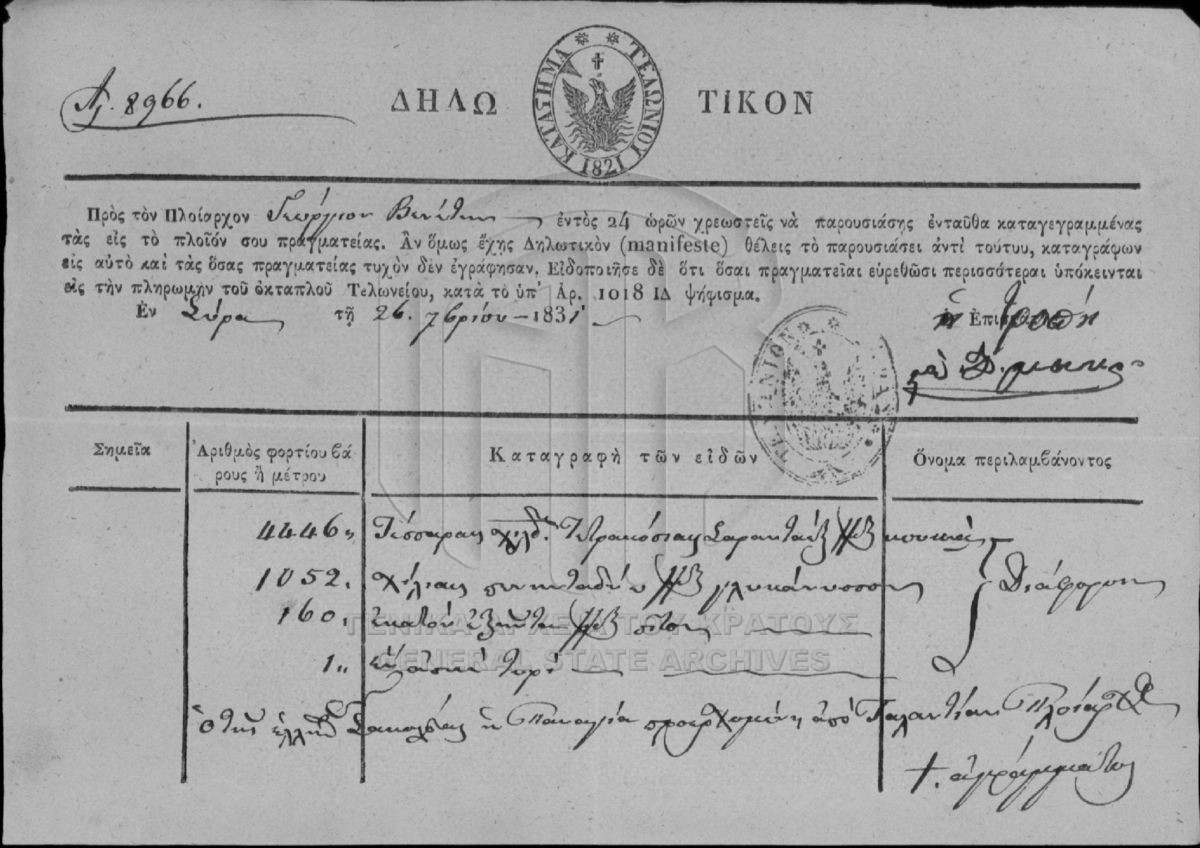 Ἀρ. 8966.
ΔΗΛΩ ΤΙΚΟΝ
ΚΑΤΑΣΤΗΜΑ ΤΕΛΩΝΙΟΥ 1821
Πρὸς τὸν Πλοίαρχον Γεώργιον ἐντὸς 24 ὡρῶν χρεωστεῖς νὰ παρουσιάσῃς ἐνταῦθα καταγεγραμμένας
τὰς εἰς τὸ πλοῖόν σου πραγματείας. Ἂν ὅμως ἔχῃς Δηλωτικὸν (manifeste) θέλεις τὸ παρουσιάσει ἀντὶ τούτυυ, καταγράφων
εἰς αὐτὸ καὶ τὰς ὅσας πραγματείας τυχὸν δὲν ἐγράφησαν. Εἰδοποιῆσε δὲ ὅτι ὅσαι πραγματεῖαι εὑρεθῶσι περισσότεραι ὑπόκεινται
εἰς τὴν πληρωμὴν τοῦ ὀκταπλοῦ Τελωνείου, κατὰ τὸ ὑπ' Ἀρ. 1018 ΙΔ ψήφισμα.
Ἐν Σύρα τῇ 26. 7βρίου - 1831
Σημεῖα
Ἀριθμὸς φορτίου βάρους ἢ μέτρου
Καταγραφὴ τῶν εἰδῶν
Ὄνομα περιλαμβάνοντος
4446 Τέσσαρας χιλδ. τετρακόσιας σαράντα ἓξ
1052. χίλιας πενηνταδύο γλυκάνισσον
160. ἑκατὸν ἑξῆντα
1 τυρί
Διάφορον
ἡ Παναγία προερχομένη ἀπὸ
+. ἀγράμματος
ΓΕΝΙΚΑ ΑΡΧΕΙΑ ΤΟΥ ΚΡΑΤΟΥΣ
GENERAL STATE ARCHIVES